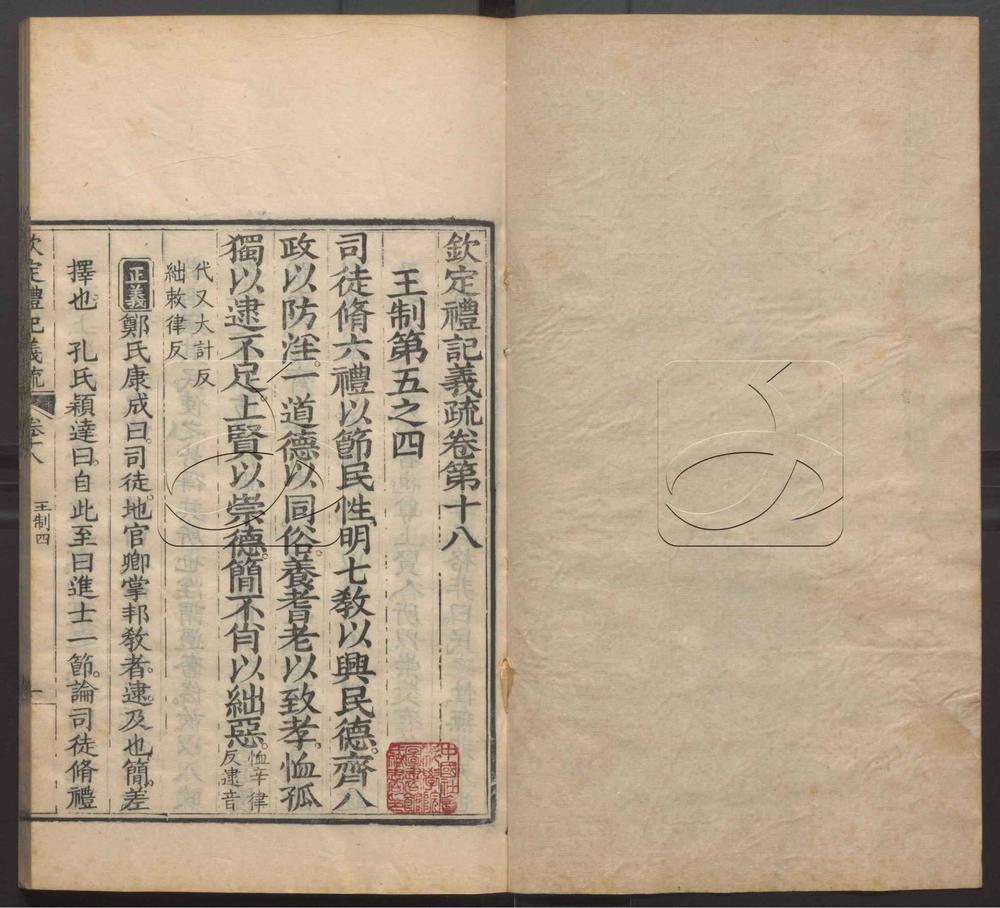 欽定禮記義疏卷第十八
王制第五之四
司徒脩六禮以節民性明七敎以興民德齊八
政以防淫一道德以同俗養耆老以致孝恤孤
獨以逮不足上賢以崇德簡不肖以絀惡恤辛律反逮音
代又大計反
絀敕律反
正義 鄭氏康成曰司徒地官卿掌邦敎者逮及也簡差
擇也 孔氏穎達曰自此至曰進士一節論司徒脩禮
欽定禮記義疏 卷十八 王制四 一